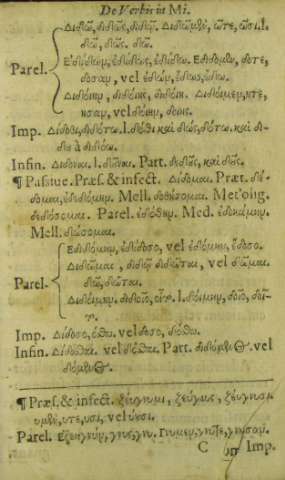 De Verbis in Mi.
Διδῶ, διδῶς, διδῷ. Διδῶμεν, ῶτε, ῶσι. l.
δῶ, δῶς, δῶ.
Parel. Ἐδίδων, ἐδίδως, ἐδίδω. Ἐδίδομεν, οτε,
οσαν, vel ἐδων, ἐδως, ἐδω.
Διδοίην, διδοίης, διδοίη. Διδοίημεν, ητε,
ησαν, vel δοίην, δοίης.
Imp. Δίδοθι, διδότω. l. δόθι καὶ δὸς, δότω. καὶ δί-
δω à διδόω.
Infin. Διδόναι. l. δοῦναι. Part. διδοὺς, καὶ δούς.
¶ Passiue. Præs. & infect. Δίδομαι. Præt. δέ-
δομαι, ἐδιδόμην. Mell. δοθήσομαι. Met'olig.
δεδόσομαι. Parel. ἐδόθην. Med. ἐδωκάμην.
Mell. δώσομαι.
Parel. Ἐδιδόμην, ἐδίδοσο, vel ἐδόμην, ἔδοσο.
Διδῶμαι, διδῷ διδῶται, vel δῶμαι.
δῷ, δῶται.
Διδοίμην. διδοῖο, οῖτο. l. δοίμην, δοῖο, δοῖ-
το.
Imp. Δίδοσο, όσθω. vel δόσο, δόσθω.
Infin. Δίδοσθαι. vel δόσθαι. Part. διδόμενος. vel
δόμενος.
¶ Præs. & infect. ζεύγνυμι, ζεύγνυς, ζεύγνυσι
υμεν, υτε, υσι, vel ύασι.
Parel. Ἐζεύγνυν, γνυς, γνυ. Γνυμεν, γνυτε, γνυσαν.
C Imp.